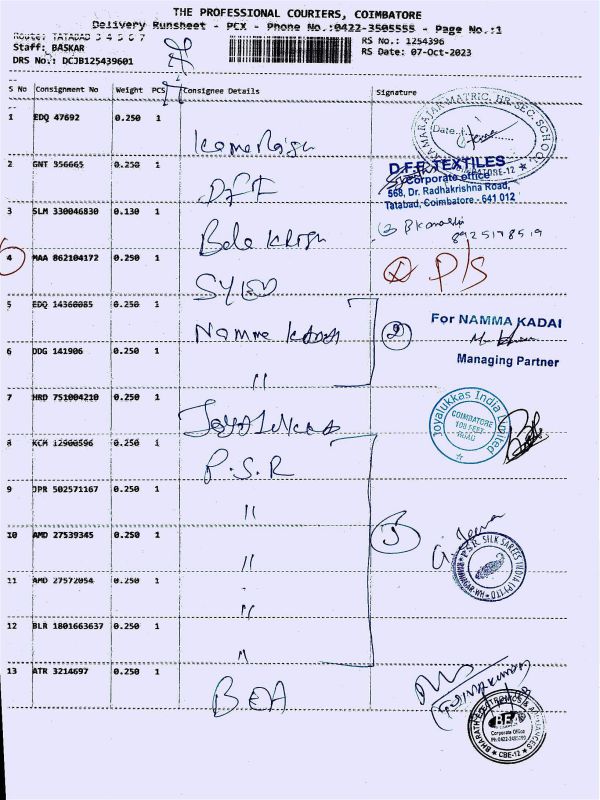 THE PROFESSIONAL COURIERS, COIMBATORE
Delivery Runsheet - PCX - Phone No.:0422-3505555 - Page No.:1
Route: TATABAD 3 4 5 6 7
RS No.: 1254396
Staff: BASKAR
RS Date: 07-Oct-2023
DRS No.: DCJB125439601
S No Consignment No Weight PCS Consignee Details Signature
1 EDQ 47692 0.250 1
KAMARAJAR MATRIC. HR. SEC. SCHOOL
Date
COIMBATORE-12
2 GNT 356665 0.250 1 DFE
D.F.E. TEXTILES
Corporate office
568, Dr. Radhakrishna Road,
Tatabad, Coimbatore - 641 012
3 SLM 330046830 0.130 1
8925178519
4 MAA 862104172 0.250 1
P/S
5 EDQ 14360085 0.250 1 Namma Kadai
2
For NAMMA KADAI
Managing Partner
6 DDG 141906 0.250 1 "
7 HRD 751004210 0.250 1 Joyalukkas
Joyalukkas India Limited
COIMBATORE
100 FEET
ROAD
8 KCM 12900596 0.250 1 P.S.R
9 JPR 502571167 0.250 1 "
10 AMD 27539345 0.250 1 "
5
P.S.R. SILK SAREES INDIA (P) LTD
11 AMD 27572054 0.250 1 "
12 BLR 1801663637 0.250 1 "
13 ATR 3214697 0.250 1 BEA
BHARATH ELECTRONICS & APPLIANCES
BEA
Corporate Office
CBE-12